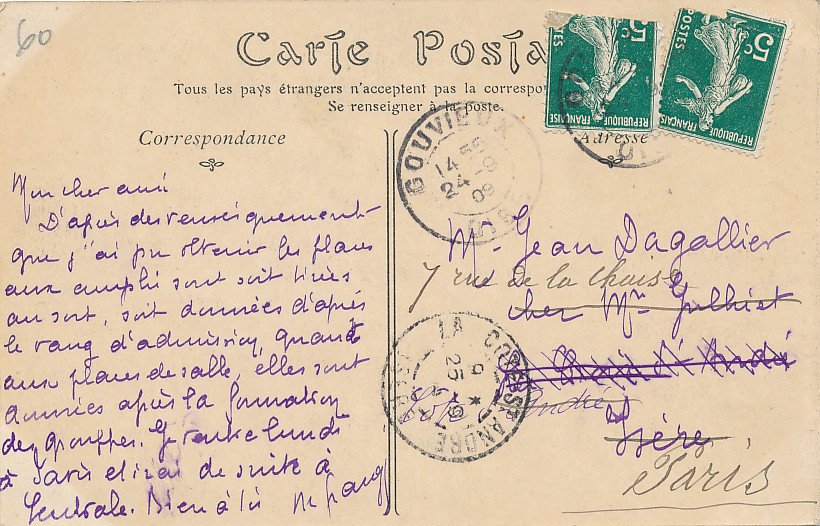 60
Carte Posta
Tous les pays étrangers n'acceptent pas la correspon
Se renseigner à la poste.
Correspondance
Adresse
5c
POSTES
REPUBLIQUE FRANÇAISE
5c
POSTES
REPUBLIQUE FRANÇAISE
GOUVIEUX
14 55
24 -9
09
OISE
OISE
Mon cher ami
D'après des renseignements
que j'ai pu obtenir les places
aux amphis sont soit tirées
au sort, soit données d'après
le rang d'admission. Quant
aux places de salle, elles sont
données après la formation
des groupes. Je rentre lundi
à Paris et irai de suite à
Centrale. Bien à toi
Mr Jean Dagallier
7 rue de la Chaise
chez Mr
LA COTE ST ANDRE
25 -9
André
Isère
Paris